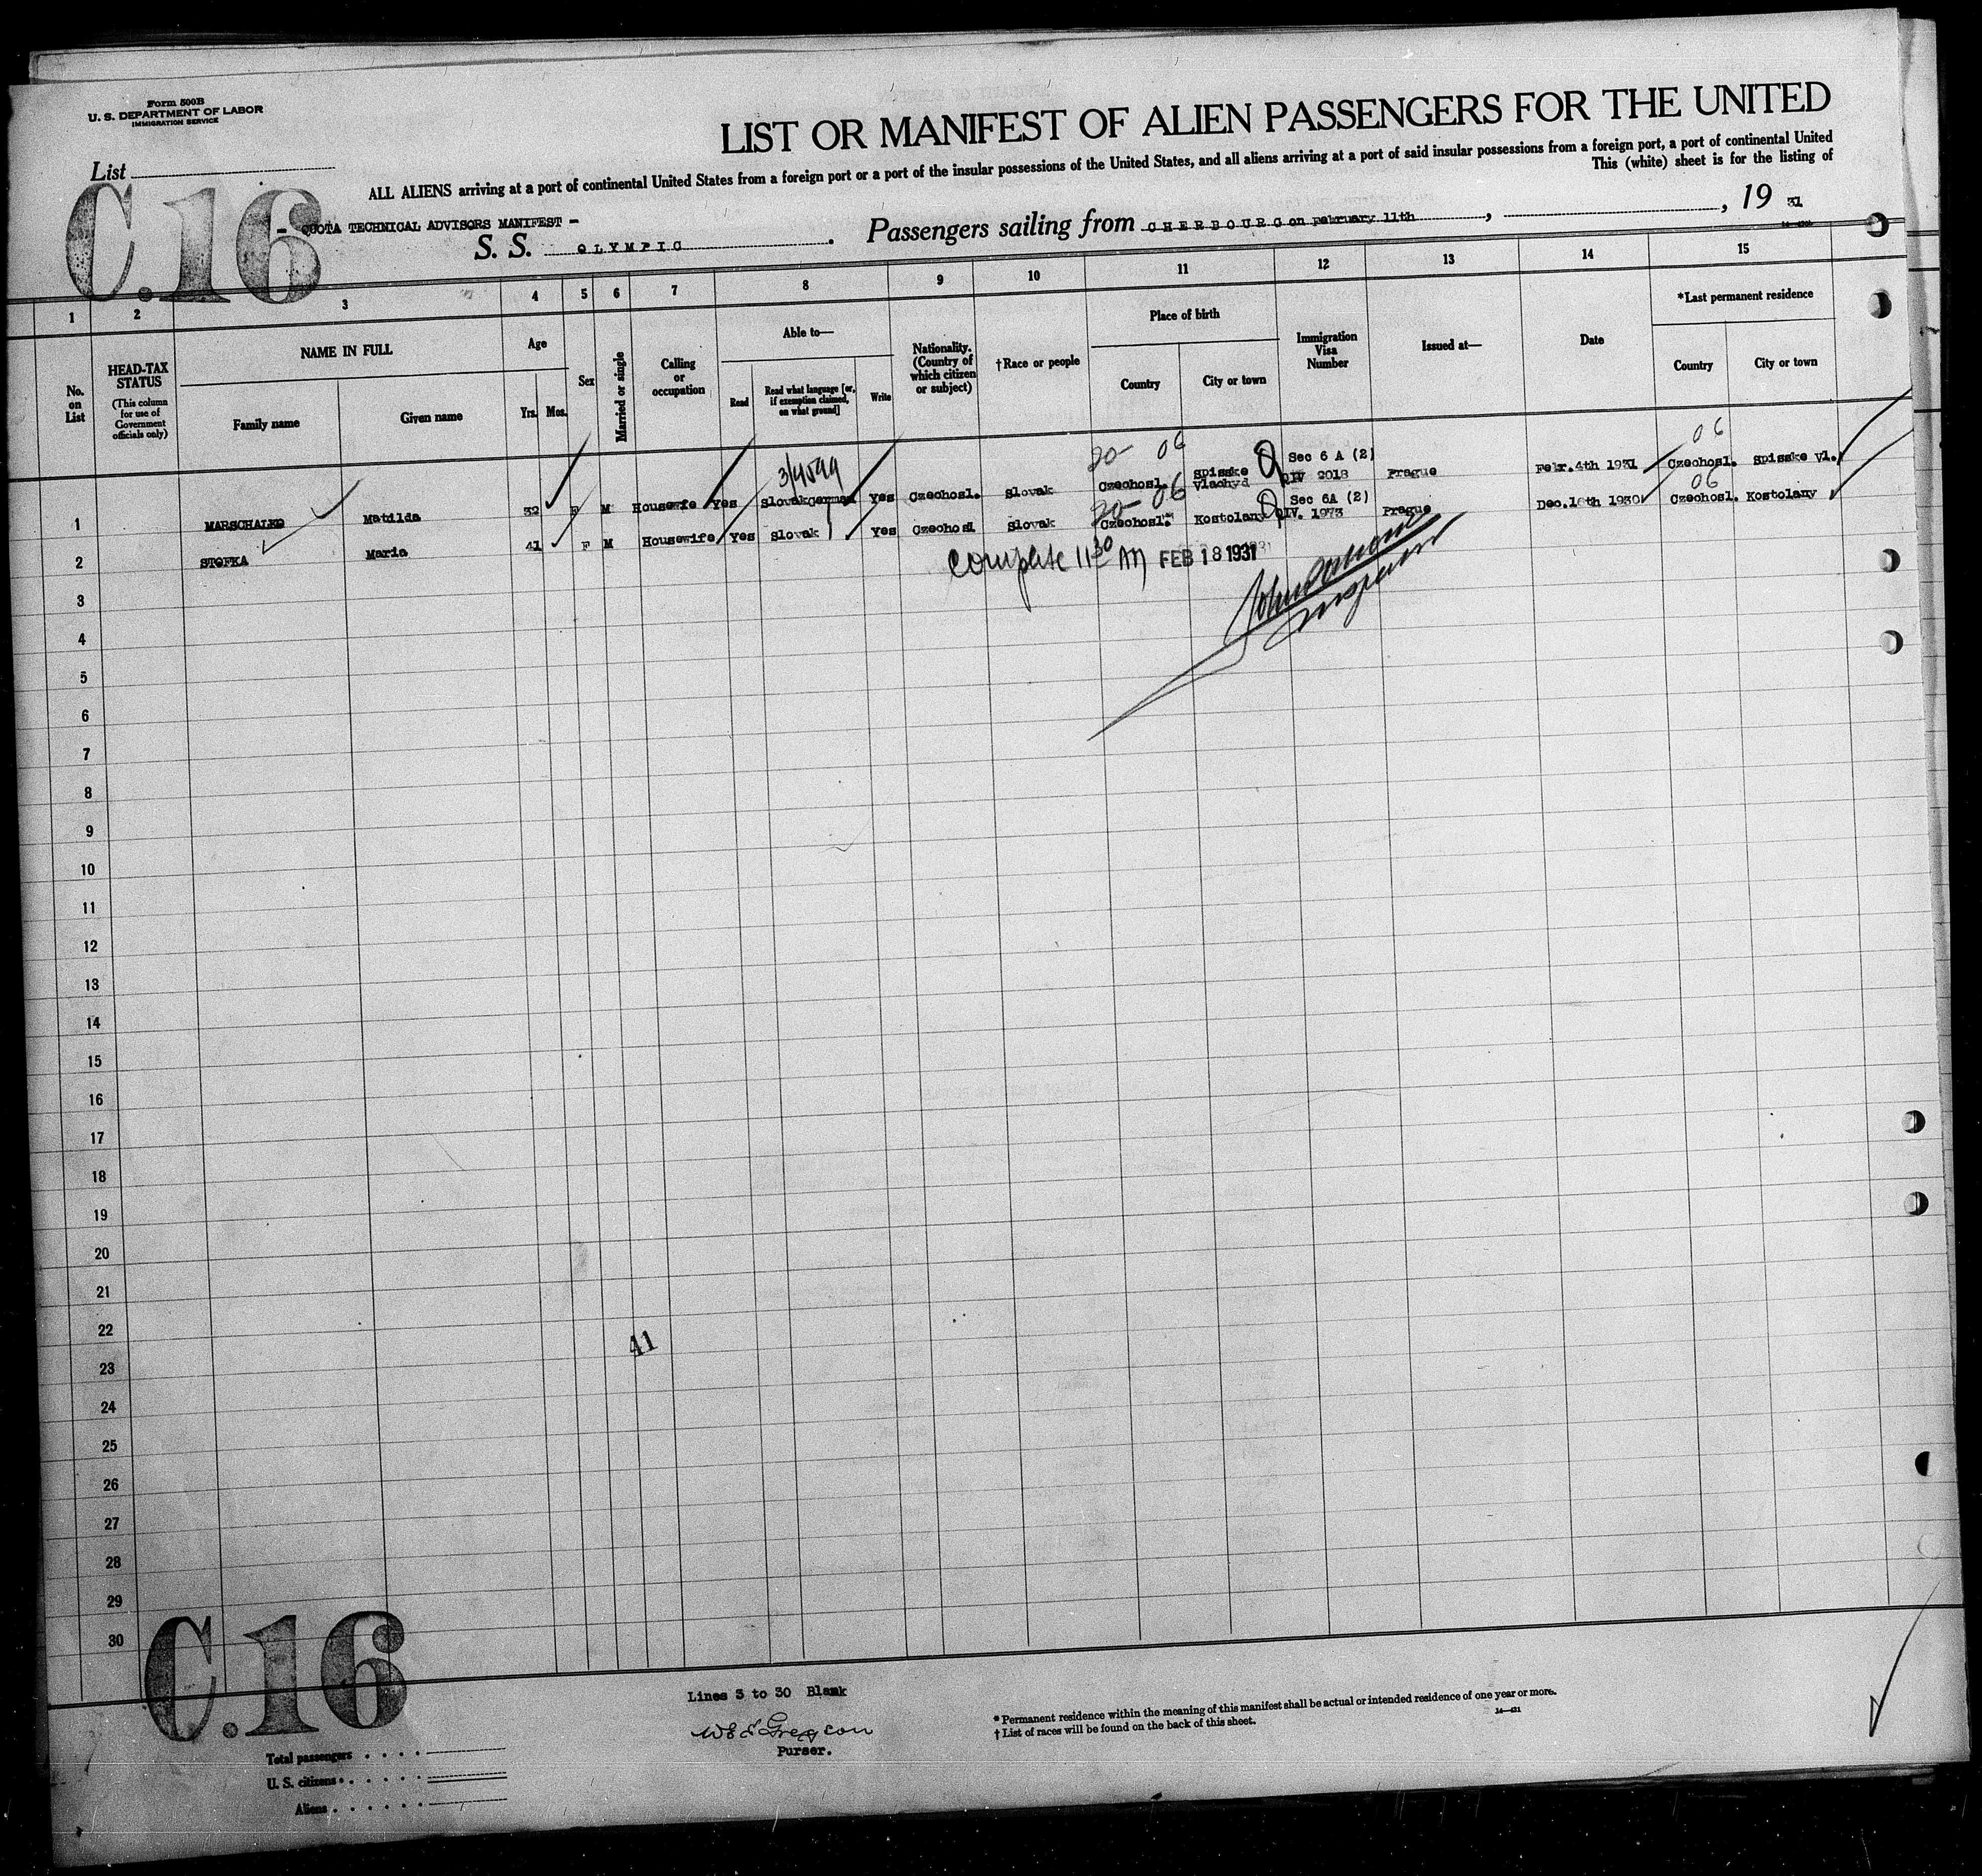 Form 500B
U. S. DEPARTMENT OF LABOR
IMMIGRATION SERVICE
LIST OR MANIFEST OF ALIEN PASSENGERS FOR THE UNITED
List
ALL ALIENS arriving at a port of continental United States from a foreign port or a port of the insular possessions of the United States, and all aliens arriving at a port of said insular possessions from a foreign port, a port of continental United
This (white) sheet is for the listing of
C.16
- QUOTA TECHNICAL ADVISORS MANIFEST -
S. S. OLYMPIC. Passengers sailing from CHERBOURG on February 11th, , 19 31
1 2 3 4 5 6 7 8 9 10 11 12 13 14 15
No. on List
HEAD-TAX STATUS (This column for use of Government officials only)
NAME IN FULL
Family name Given name
Age
Yrs. Mos.
Sex
Married or single
Calling or occupation
Able to—
Read Read what language [or, if exemption claimed, on what ground] Write
Nationality. (Country of which citizen or subject)
†Race or people
Place of birth
Country City or town
Immigration Visa Number
Issued at—
Date
*Last permanent residence
Country City or town
3/4599 20- 06 06
1 MARSCHALKO Matilda 32 F M Housewife Yes Slovak German Yes Czechosl. Slovak Czechosl. Spisske Vlachyd Sec 6 A (2) QIV 2018 Prague Febr.4th 1931 Czechosl. Spisske Vl.
20- 06 06
2 STOFKA Maria 41 F M Housewife Yes Slovak Yes Czechosl Slovak Czechosl. Kostolany Sec 6A (2) QIV. 1973 Prague Dec.18th 1930 Czechosl. Kostolany
Complete 11 30 AM FEB 18 1931
Inspector
3
4
5
6
7
8
9
10
11
12
13
14
15
16
17
18
19
20
21
22
41
23
24
25
26
27
28
29
30
C.16
Lines 3 to 30 Blank
Purser.
* Permanent residence within the meaning of this manifest shall be actual or intended residence of one year or more.
† List of races will be found on the back of this sheet.
14—421
Total passengers
U. S. citizens
Aliens